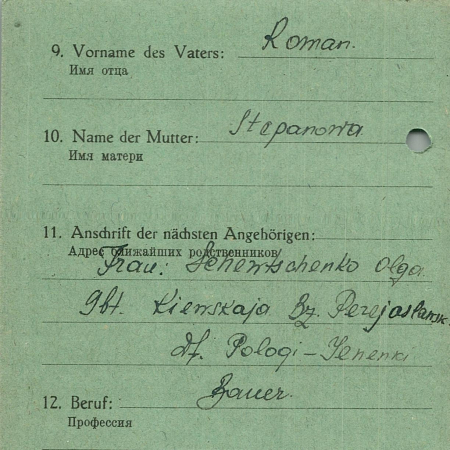 9. Vorname des Vaters: Roman.
Имя отца
10. Name der Mutter: Stepanowa
Имя матери
11. Anschrift der nächsten Angehörigen:
Адрес ближайших родственников
Frau: Schewtschenko Olga
Gbt. Kiewskaja Bz. Perejoslawsk.
Df. Pologi-Jenenki
Bauer.
12. Beruf:
Профессия